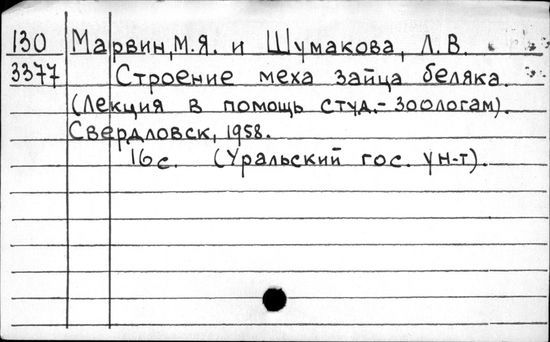 130 Марвин, М.Я. и Шумакова, Л.В.
3377 Строение меха зайца беляка.
(Лекция в помощь студ.-зоологам).
Свердловск, 1958.
16с. (Уральский гос. ун-т).